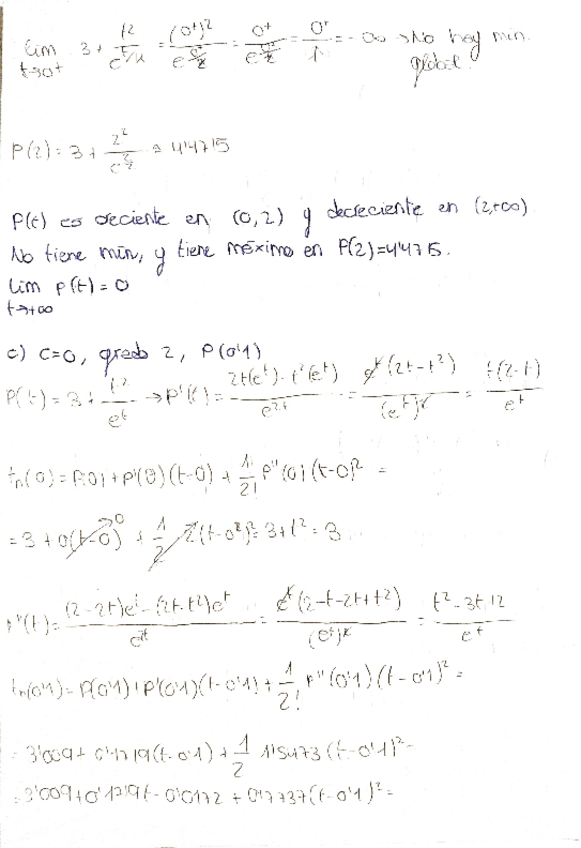 lim t→0+ 3 + t²/e^(t/2) = (0+)²/e^(0/2) = 0+/e^(0/2) = 0+/1 = -∞ → No hay mín. global.
P(2) = 3 + 2²/e^(2/2) ≈ 4'4715
P(t) es creciente en (0,2) y decreciente en (2,+∞)
No tiene mín, y tiene máximo en P(2)=4'4715.
lim p(t) = 0
t→+∞
c) c=0, grado 2, P(0'1)
P(t) = 3 + t²/e^t → p'(t) = (2t(e^t) - t²(e^t))/e^2t = e^t(2t-t²)/(e^t)² = t(2-t)/e^t
tn(0) = P(0) + p'(0)(t-0) + 1/2! p''(0)(t-0)² =
= 3 + 0(t-0) + 1/2 2(t-0)² = 3+t² = 3
p''(t) = ((2-2t)e^t - (2t-t²)e^t)/e^2t = e^t(2-t-2t+t²)/(e^t)² = (t²-3t+2)/e^t
tn(0'1) = P(0'1) + P'(0'1)(t-0'1) + 1/2! p''(0'1)(t-0'1)² =
= 3'009 + 0'1719(t-0'1) + 1/2 1'5473(t-0'1)² =
= 3'009 + 0'1719t - 0'0172 + 0'7737(t-0'1)² =